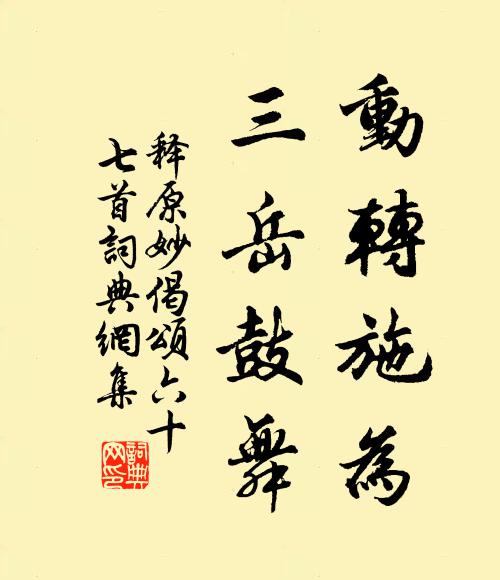 動轉施為
三岳鼓舞
释原妙偈頌六十
七首詞典網集
詞典
网印